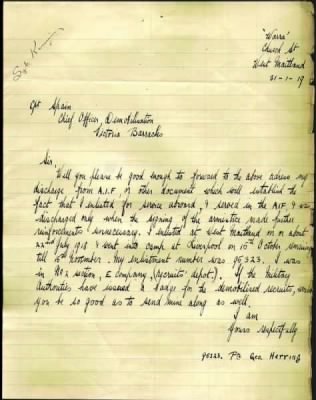 "Warra"
Church St
West Maitland
21-1-19
Cpt Spain
Chief Officer, Demobilisation
Victoria Barracks
Sir,
Will you please be good enough to forward to the above adress my
discharge from A.I.F or other document which will establish the
fact that I enlisted for service abroad, & served in the A.I.F & was
discharged only when the signing of the armistice made further
reinforcements unnecessary. I enlisted at West Maitland on or about
22nd July 1918 & went into camp at Liverpool on 15th October remaining
till 15th November. My enlistment number was 95323. I was
in No 2 section, E company, (recruits depot). If the military
authorities have issued a badge for the demobilized recruits, would
you be so good as to send mine along as well.
I am
Yours respectfully
95323. Pte Geo Herring